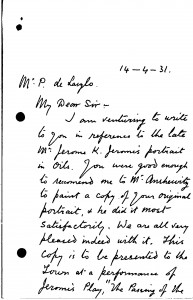 14-4-31.
Mr. P. de Laszlo.
My Dear Sir-
I am venturing to write
to you in reference to the late
Mr. Jerome K. Jerome's portrait
in Oils. You were good enough
to recommend me to Mr.
to paint a copy of your original
portrait, & he did it most
satisfactorily. We are all very
pleased indeed with it. This
copy is to be presented to the
Town at a performance of
Jerome's Play, "The Passing of the